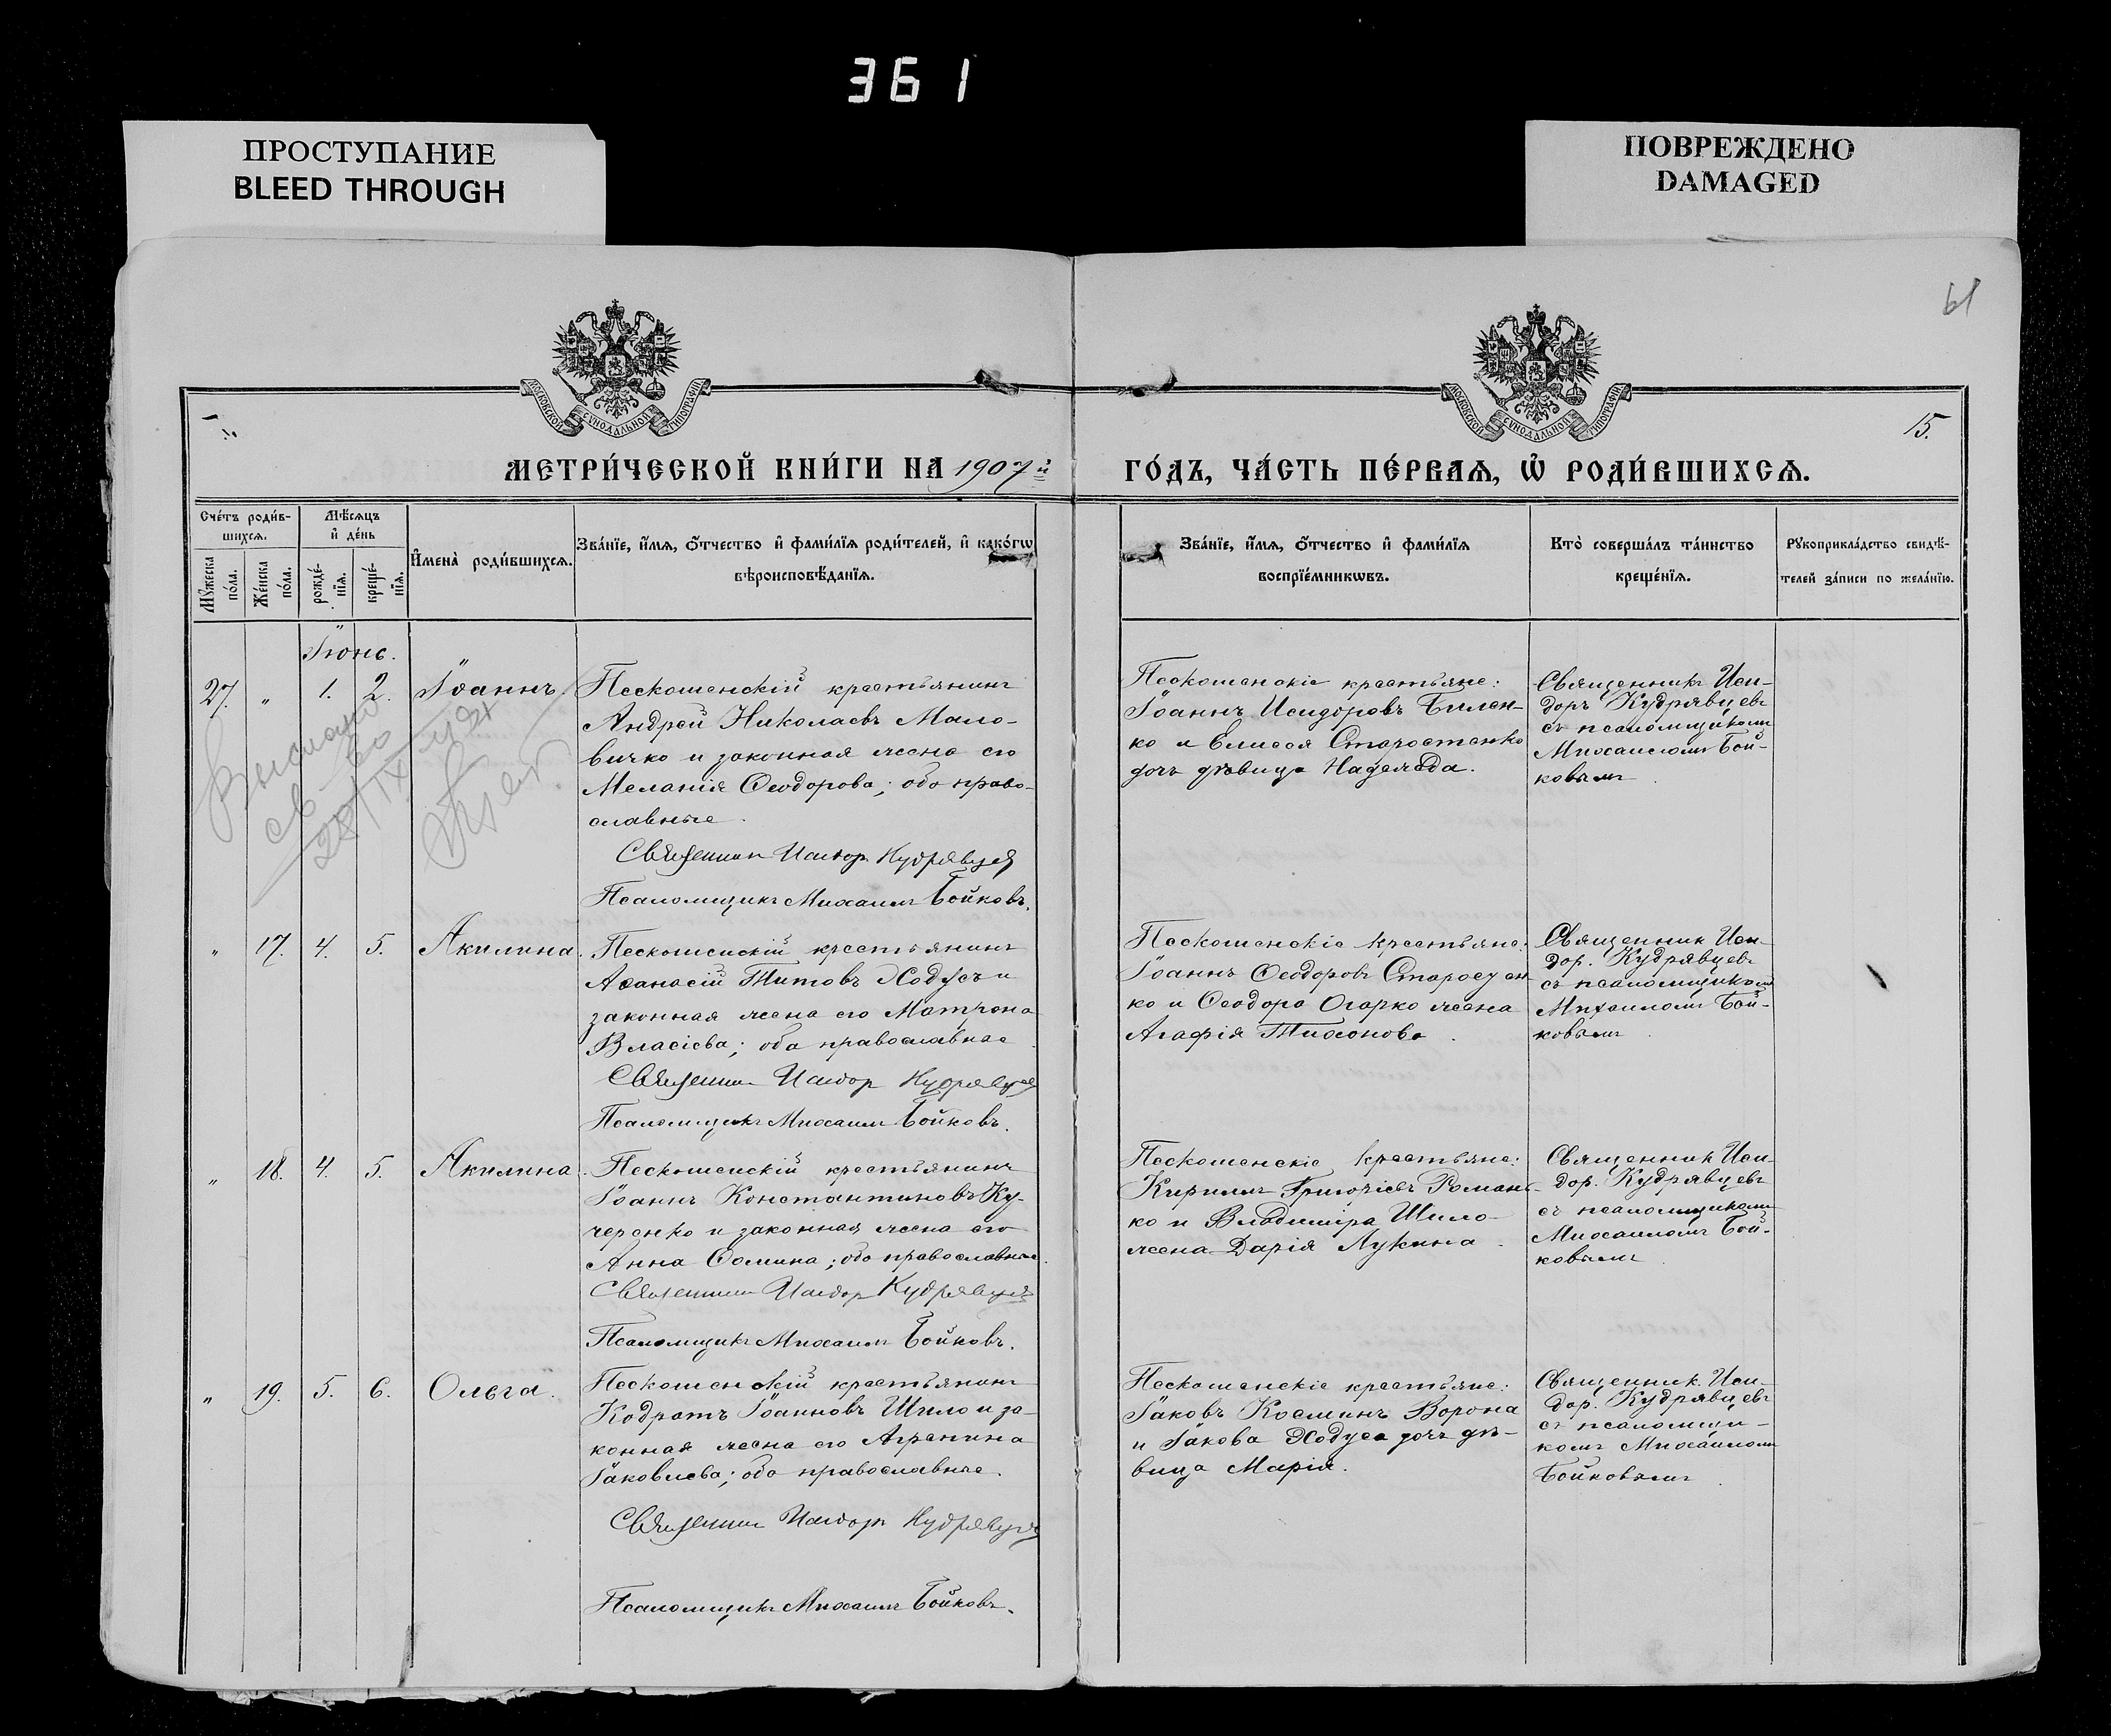 361
ПРОСТУПАНИЕ
BLEED THROUGH
ПОВРЕЖДЕНО
DAMAGED
61
15.
МОСКОВСКОЙ СУНОДАЛЬНОЙ ТИПОГРАФІИ
МОСКОВСКОЙ СУНОДАЛЬНОЙ ТИПОГРАФІИ
МЕТРИ́ЧЕСКОЙ КНИ́ГИ НА 1907й
ГО́ДЪ, ЧА́СТЬ ПЕ́РВАѦ, Ѡ РОДИ́ВШИХСѦ.
Сче́тъ роди́в-
шихсѧ.
Мꙋжеска по́ла.
Же́нска по́ла.
Мѣ́сѧцъ
и҆ де́нь
рожде́-
нїѧ.
креще́-
нїѧ.
И҆мена̀ роди́вшихсѧ.
Зва́нїе, и҆́мѧ, ѻ҆́тчество и҆ фами́лїѧ роди́телей, и҆ како́гѡ
вѣроисповѣ́данїѧ.
Зва́нїе, и҆́мѧ, ѻ҆́тчество и҆ фами́лїѧ
воспрїе́мникѡвъ.
Кто̀ соверша́лъ та́инство
креще́нїѧ.
Рꙋкоприкла́дство свидѣ́-
телей за́писи по жела́нїю.
Іюнь.
27. " 1. 2. Іоаннъ.
Пескошенскій крестьянинъ
Андрей Николаевъ Мало-
вичко и законная жена его
Меланія Ѳеодорова; оба право-
славные.
Священник Исидор Кудрявцев
Псаломщикъ Михаилъ Бойковъ.
Пескошенскіе крестьяне:
Іоаннъ Исидоровъ Билен-
ко и Елисея Старостенко
дочь дѣвица Надежда.
Священникъ Иси-
доръ Кудрявцевъ
съ псаломщикомъ
Михаиломъ Бой-
ковымъ
" 17. 4. 5. Акилина.
Пескошенскій крестьянинъ
Аѳанасій Титовъ Ходусъ и
законная жена его Матрона
Власіева; оба православные
Священник Исидор Кудрявцев
Псаломщикъ Михаилъ Бойковъ.
Пескошенскіе крестьяне:
Іоаннъ Ѳеодоровъ
ко и Ѳеодора Огарко жена
Агафія Тихонова.
Священник Иси-
дор. Кудрявцевъ
съ псаломщикомъ
Михаиломъ Бой-
ковымъ
" 18. 4. 5. Акилина.
Пескошенскій крестьянинъ
Іоаннъ Константиновъ Ку-
черенко и законная жена его
Анна Ѳомина; оба православные.
Священник Исидор Кудрявцев
Псаломщикъ Михаилъ Бойковъ.
Пескошенскіе крестьяне:
Кириллъ Григорьевъ Роман-
ко и Владиміра Шило
жена Дарія Лукина.
Священник Иси-
дор. Кудрявцевъ
съ псаломщикомъ
Михаиломъ Бой-
ковымъ
" 19. 5. 6. Ольга.
Пескошенскій крестьянинъ
Кодратъ Іоанновъ Шило и за-
конная жена его Агрипина
Іаковлева; оба православные.
Священник Исидор Кудрявцев
Псаломщикъ Михаилъ Бойковъ.
Пескошенскіе крестьяне:
Іаковъ Косминъ Ворона
и Іакова Ходуса дочь дѣ-
вица Марія.
Священник. Иси-
дор. Кудрявцевъ
съ псаломщи-
комъ Михаиломъ
Бойковымъ